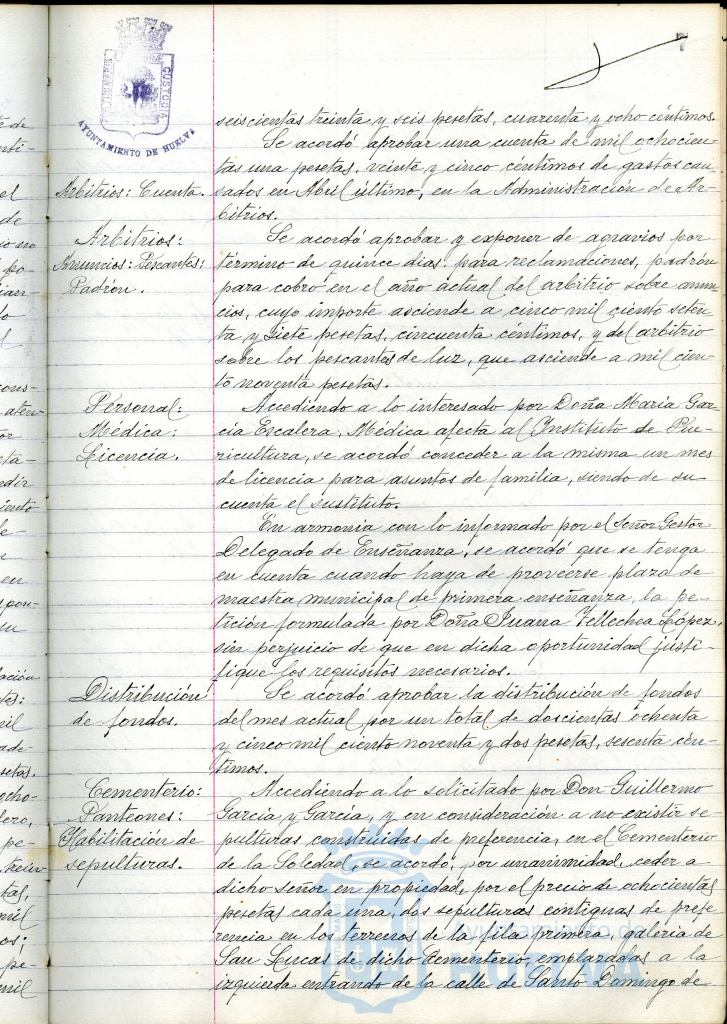 7
AYUNTAMIENTO DE HUELVA
CUSTODIA
seiscientas treinta y seis pesetas, cuarenta y ocho céntimos.
Se acordó aprobar una cuenta de mil ochocien-
tas una pesetas, veinte y cinco céntimos de gastos cau-
Arbitrios: Cuenta.
sados en Abril último, en la Administración de Ar-
bitrios.
Arbitrios:
Anuncios: Pescantes:
Padrón.
Se acordó aprobar y exponer de agravios por
término de quince días, para reclamaciones, padrón
para cobro en el año actual del arbitrio sobre anun-
cios, cuyo importe asciende a cinco mil ciento seten-
ta y siete pesetas, cincuenta céntimos, y del arbitrio
sobre los pescantes de luz, que asciende a mil cien-
to noventa pesetas.
Personal:
Médica:
Licencia.
Accediendo a lo interesado por Doña María Gar-
cía Escalera, Médica afecta al Instituto de Pue-
ricultura, se acordó conceder a la misma un mes
de licencia para asuntos de familia, siendo de su
cuenta el sustituto.
En armonía con lo informado por el Señor Gestor
Delegado de Enseñanza, se acordó que se tenga
en cuenta cuando haya de proveerse plaza de
maestra municipal de primera enseñanza, la pe-
tición formulada por Doña Juana Tellechea López,
sin perjuicio de que en dicha oportunidad justi-
fique los requisitos necesarios.
Distribución
de fondos.
Se acordó aprobar la distribución de fondos
del mes actual, por un total de doscientas ochenta
y cinco mil ciento noventa y dos pesetas, sesenta cén-
timos.
Cementerio:
Panteones:
Habilitación de
sepulturas.
Accediendo a lo solicitado por Don Guillermo
García y García, y en consideración a no existir se-
pulturas construidas de preferencia, en el Cementerio
de la Soledad, se acordó, por unanimidad, ceder a
dicho señor en propiedad, por el precio de ochocientas
pesetas cada una, dos sepulturas contiguas de prefe-
rencia en los terrenos de la fila primera, galería de
San Lucas de dicho Cementerio, emplazadas a la
izquierda entrando de la calle de Santo Domingo de
Ayuntamiento de
HUELVA